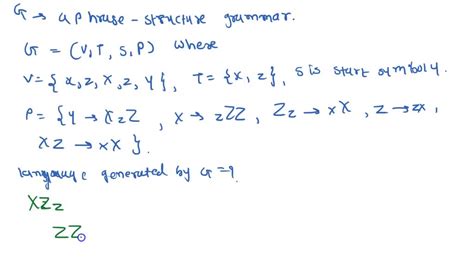 G → a phrase-structure grammar.
G = (V, T, S, P) where
V = {x, z, X, Z, Y}, T = {x, z}, S is start symbol Y.
P = {Y → XzZ, X → zZZ, Zz → xX, Z → zX,
XZ → xX}.
language generated by G = ?
XZz
ZZ